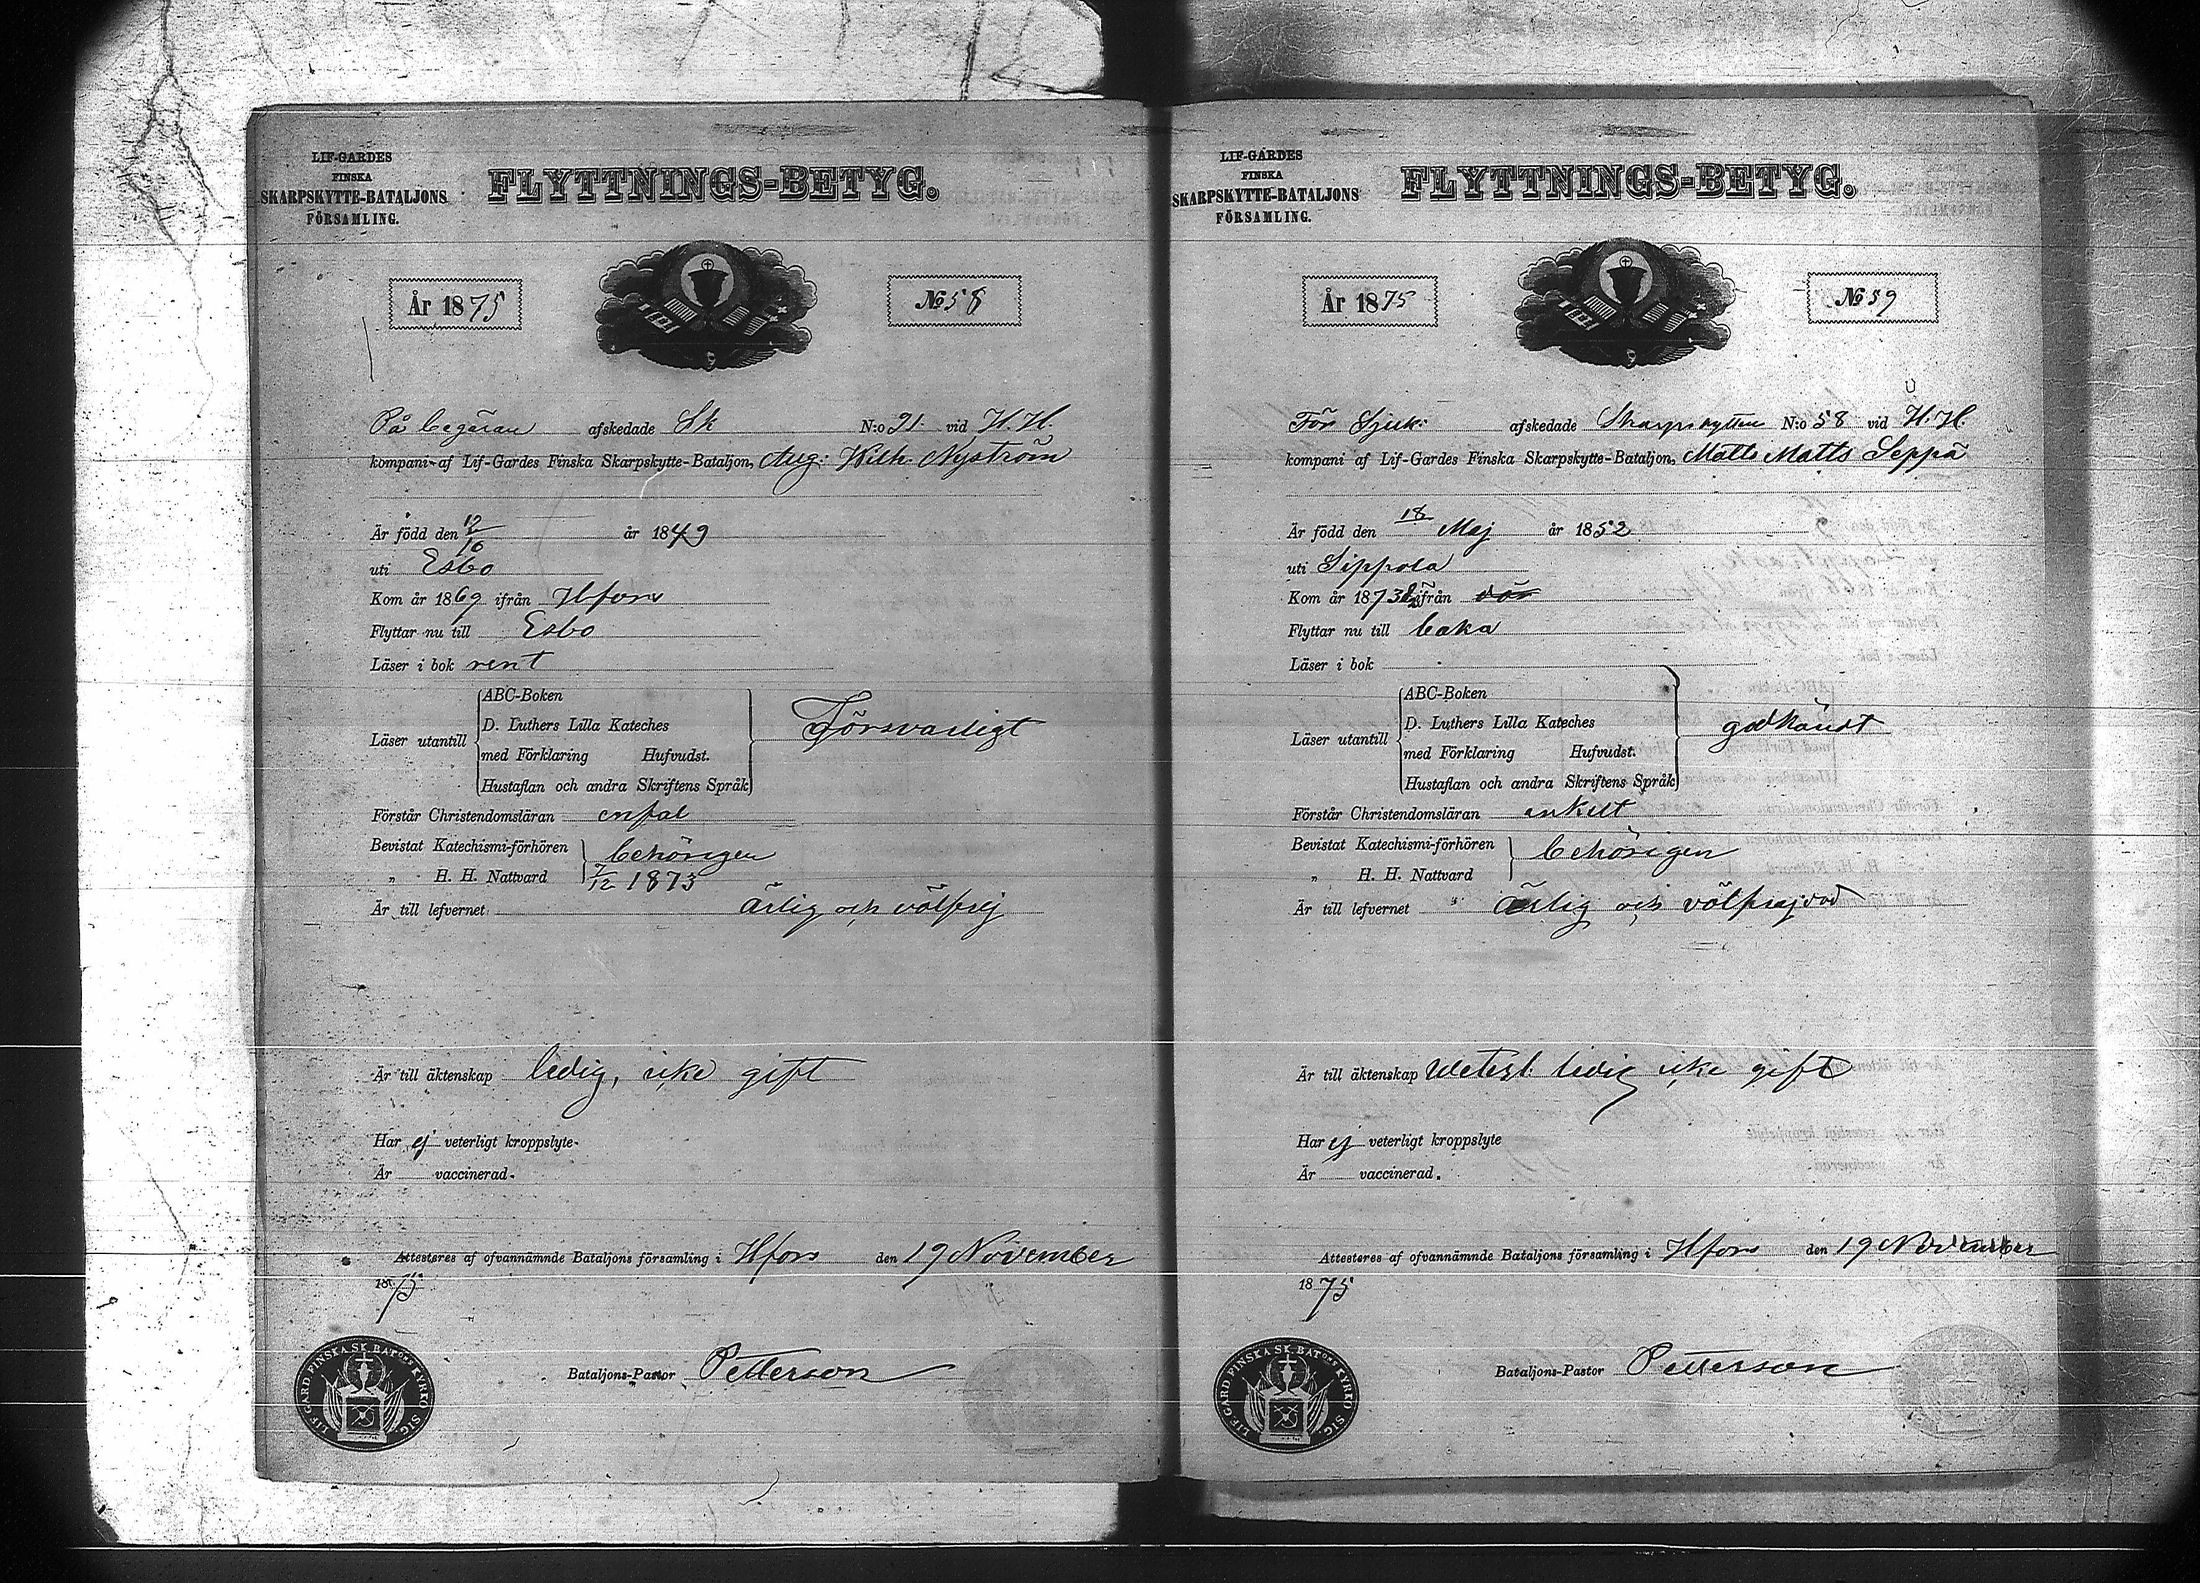 LIF-GARDES
FINSKA
SKARPSKYTTE-BATALJONS
FÖRSAMLING.
FLYTTNINGS-BETYG.
År 1875
No 58
På begäran afskedade Sk N:o 21 vid H. H.
kompani af Lif-Gardes Finska Skarpskytte-Bataljon, Aug: Wilh. Nyström
Är född den 12/10 år 1849
uti Esbo
Kom år 1869 ifrån Hfors
Flyttar nu till Esbo
Läser i bok rent
Läser utantill
ABC-Boken
D. Luthers Lilla Kateches
med Förklaring Hufvudst.
Hustaflan och andra Skriftens Språk
Försvarligt
Förstår Christendomsläran enfal
Bevistat Katechismi-förhören behörigen
„ H. H. Nattvard 7/12 1873
Är till lefvernet ärlig och välfrej
Är till äktenskap ledig, icke gift
Har ej veterligt kroppslyte
Är vaccinerad.
Attesteres af ofvannämnde Bataljons församling i Hfors den 19 November
1875
Bataljons-Pastor Petterson
LIF-GARD FINSKA SK BAT:ONS KYRKO SIG.
LIF-GARDES
FINSKA
SKARPSKYTTE-BATALJONS
FÖRSAMLING.
FLYTTNINGS-BETYG.
År 1875
No 59
För Sjuk: afskedade Skarpskytten N:o 58 vid H. H.
kompani af Lif-Gardes Finska Skarpskytte-Bataljon, Matts Matts Seppä
Är född den 18 Maj år 1852
uti Sippola
Kom år 1873 ifrån
Flyttar nu till
Läser i bok
Läser utantill
ABC-Boken
D. Luthers Lilla Kateches
med Förklaring Hufvudst.
Hustaflan och andra Skriftens Språk
godkändt
Förstår Christendomsläran enkelt
Bevistat Katechismi-förhören behörigen
„ H. H. Nattvard
Är till lefvernet ärlig och välfrejdad
Är till äktenskap ledig icke gift
Har ej veterligt kroppslyte
Är vaccinerad.
Attesteres af ofvannämnde Bataljons församling i Hfors den 19 November
1875
Bataljons-Pastor Petterson
LIF-GARD FINSKA SK BAT:ONS KYRKO SIG.